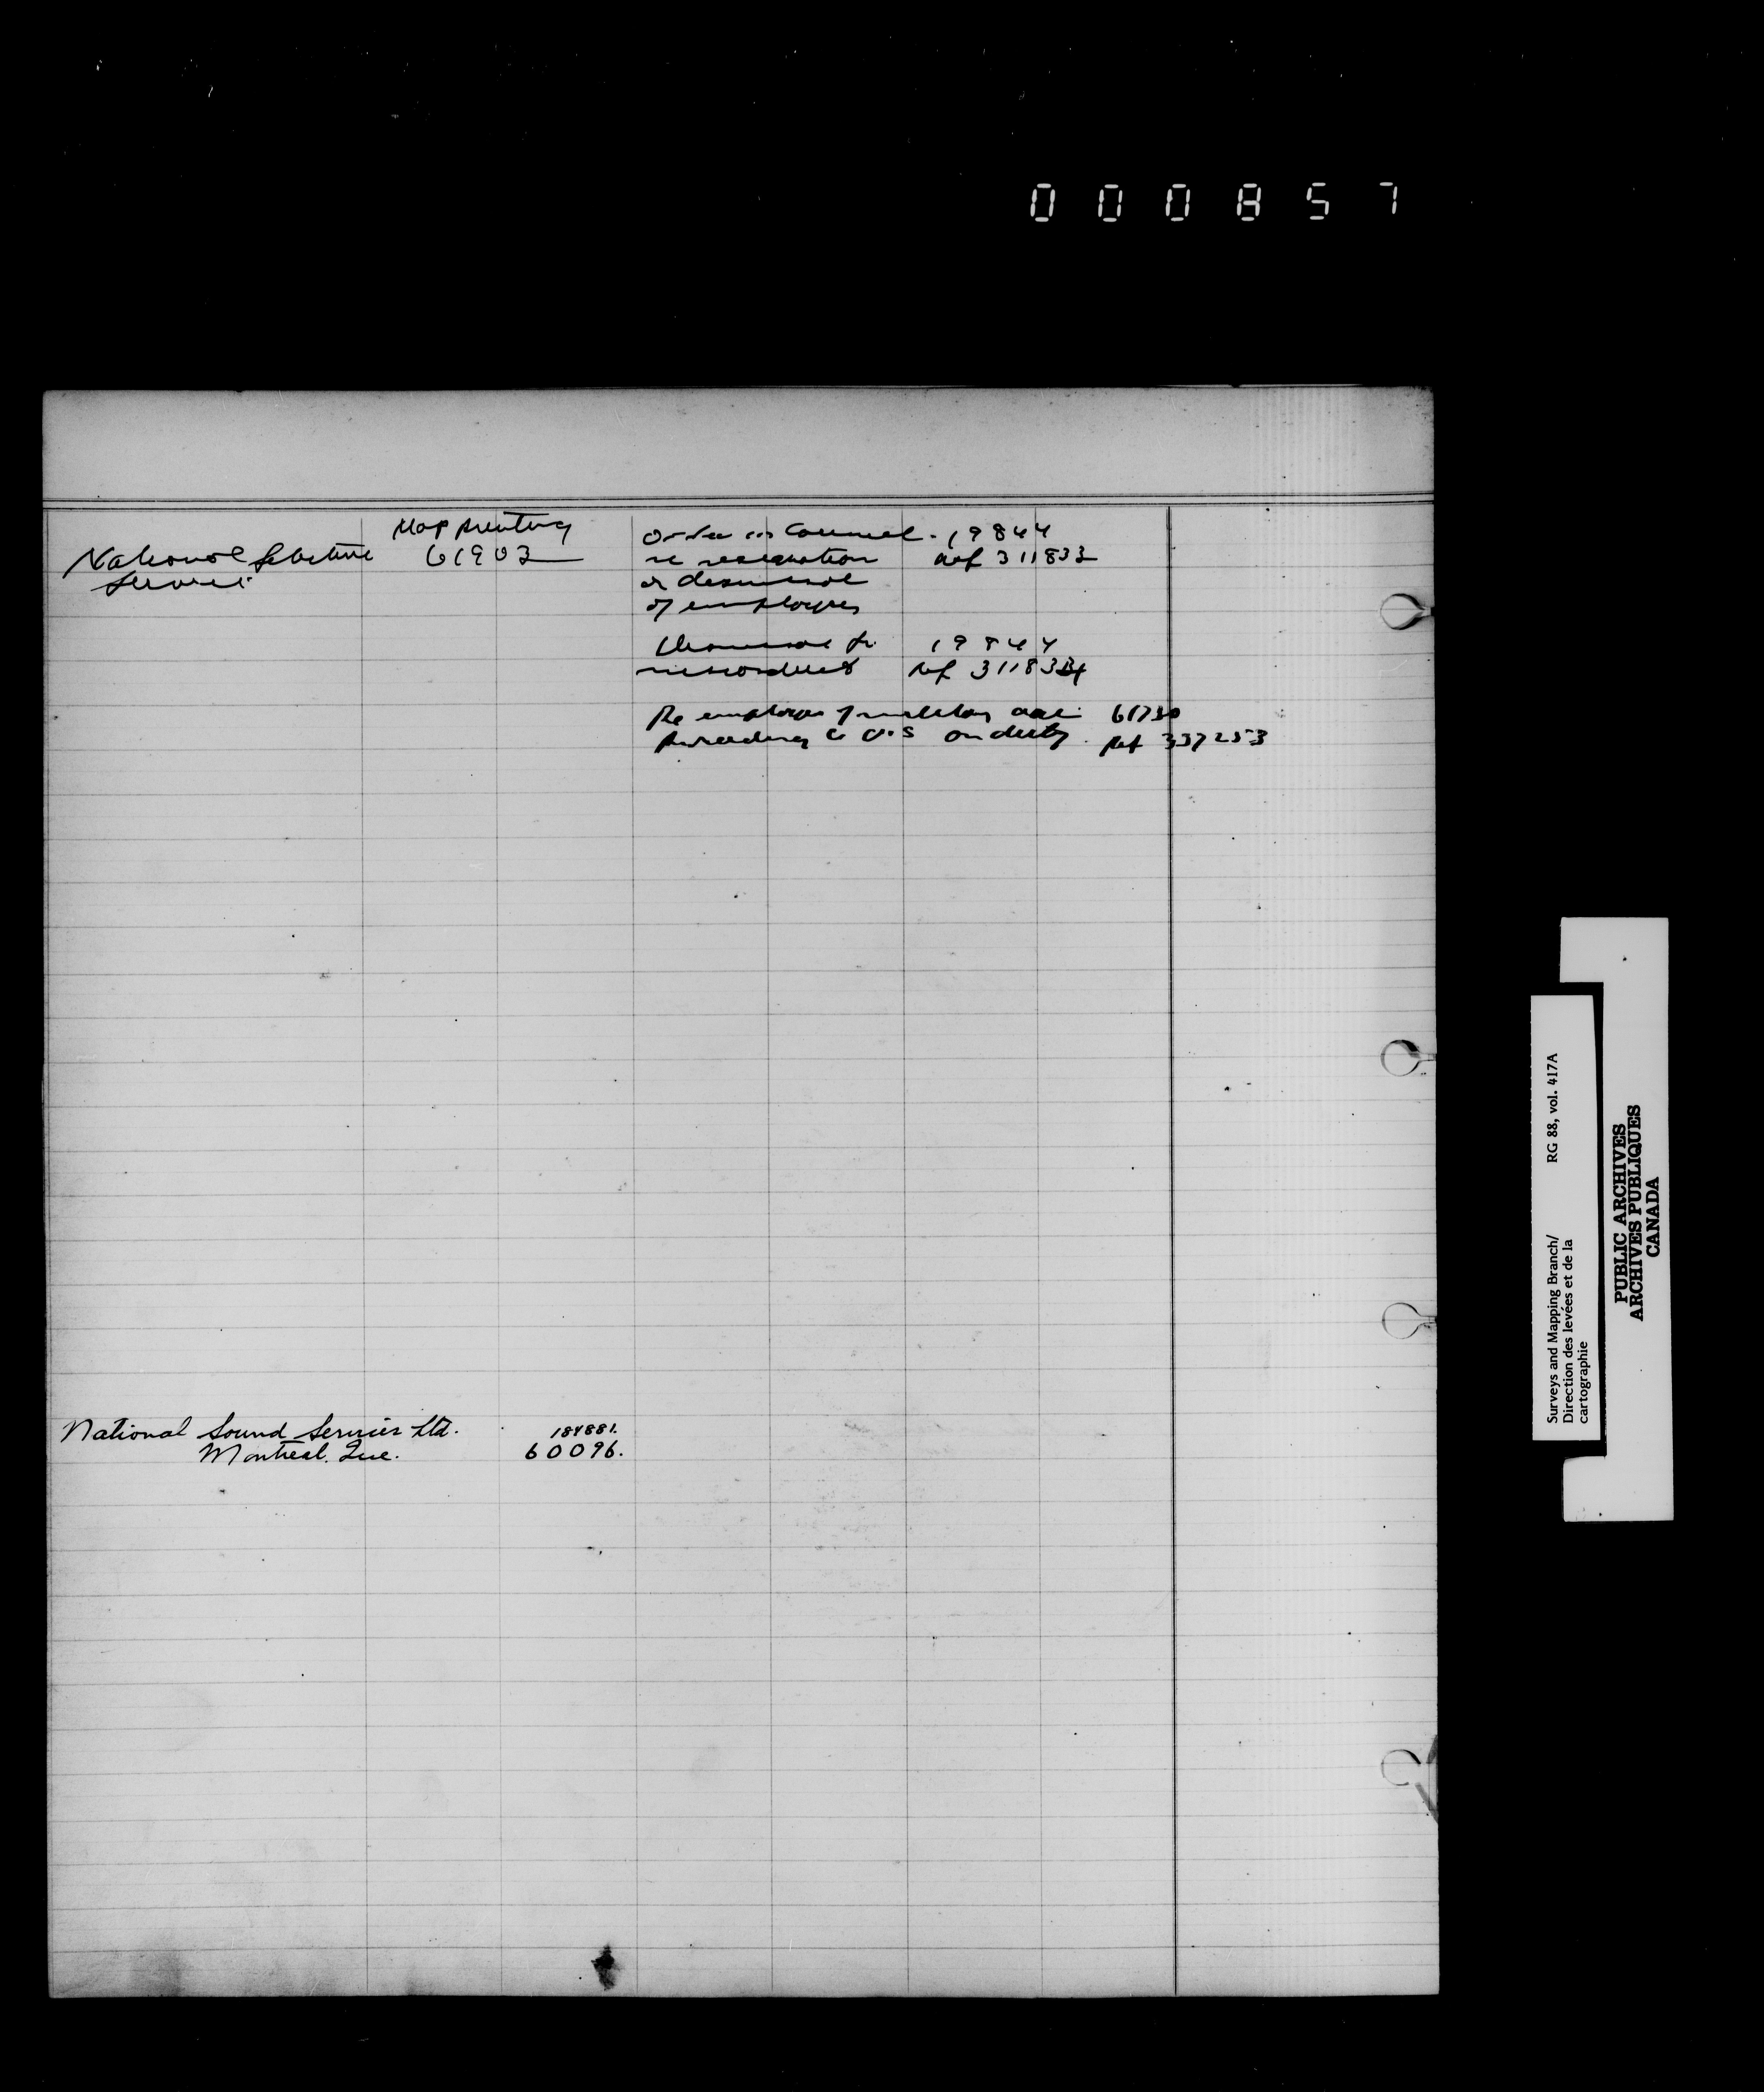 000857
Map Printing
National Selective 61903
Service
Order in Council. 19844
re resignation Ref 311833
or dismissal
of employees
Dismissal for 19844
misconduct Ref 311834
Re employees of military age 61730
on duty. Ref 337253
National Sound Services Ltd. 184881.
Montreal. Que. 60096.
Surveys and Mapping Branch/ RG 88, vol. 417A
Direction des levées et de la
cartographie
PUBLIC ARCHIVES
ARCHIVES PUBLIQUES
CANADA